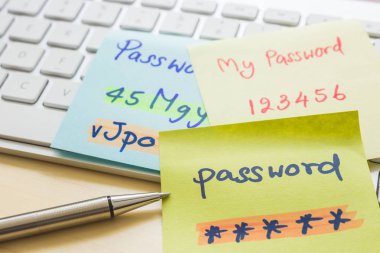 Password
45Mgy
vJpo
My Password
123456
password
*****